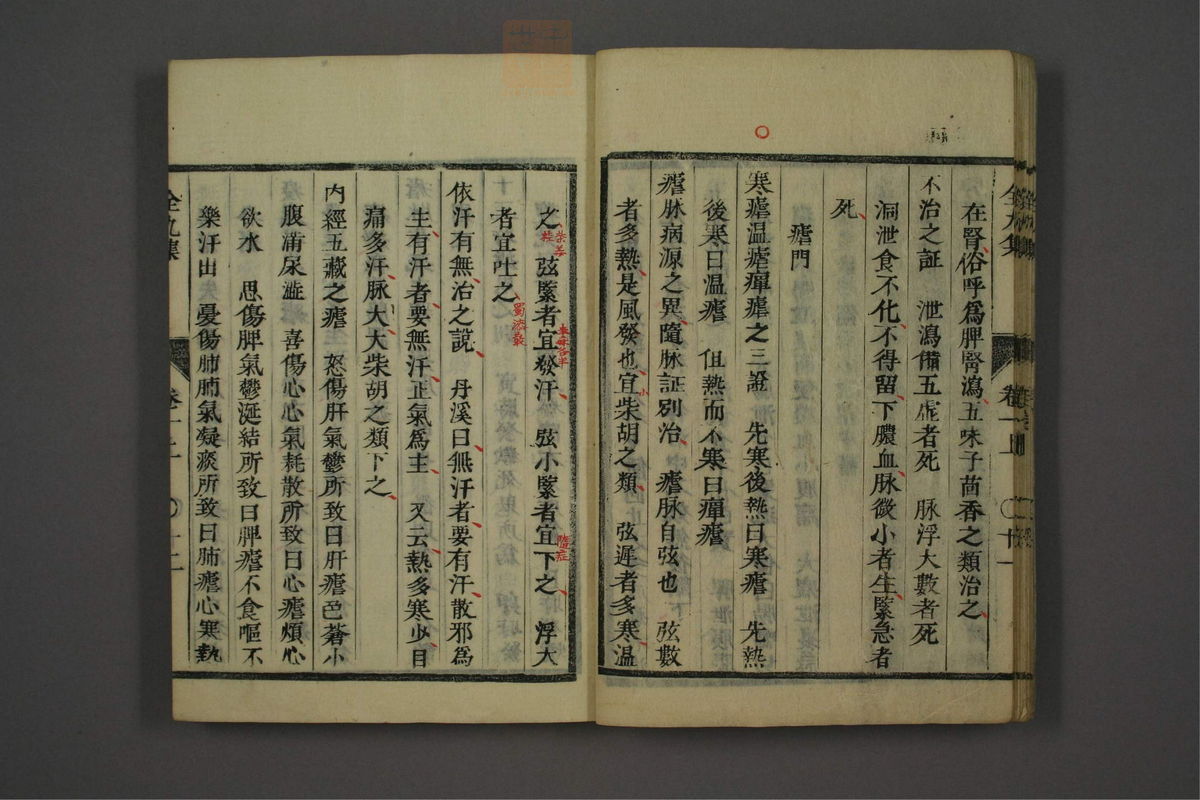 在腎俗呼爲脾腎瀉五味子茴香之類治之
不治之証　泄瀉備五虛者死　脉浮大數者死
洞泄食不化不得留下膿血脉微小者生緊急者
死
瘧門
寒瘧温瘧癉瘧之三證　先寒後熱曰寒瘧　先熱
後寒曰温瘧　但熱而不寒曰癉瘧
瘧脉病源之異隨脉証別治　瘧脉自弦也　弦數
者多熱是風發也宜柴胡之類　弦遲者多寒温
全九集
卷一上
十一
之　弦緊者宜發汗　弦小緊者宜下之　浮大
者宜吐之
蜀漆散
依汗有無治之說　丹溪曰無汗者要有汗散邪爲
生有汗者要無汗正氣爲主　又云熱多寒少目
痛多汗脉大大柴胡之類下之
内經五藏之瘧　怒傷肝氣鬱所致曰肝瘧色蒼小
腹滿尿澁　喜傷心心氣耗散所致曰心瘧煩心
欲水　思傷脾氣鬱涎結所致曰脾瘧不食嘔不
樂汗出　憂傷肺肺氣凝痰所致曰肺瘧心寒熱
全九集